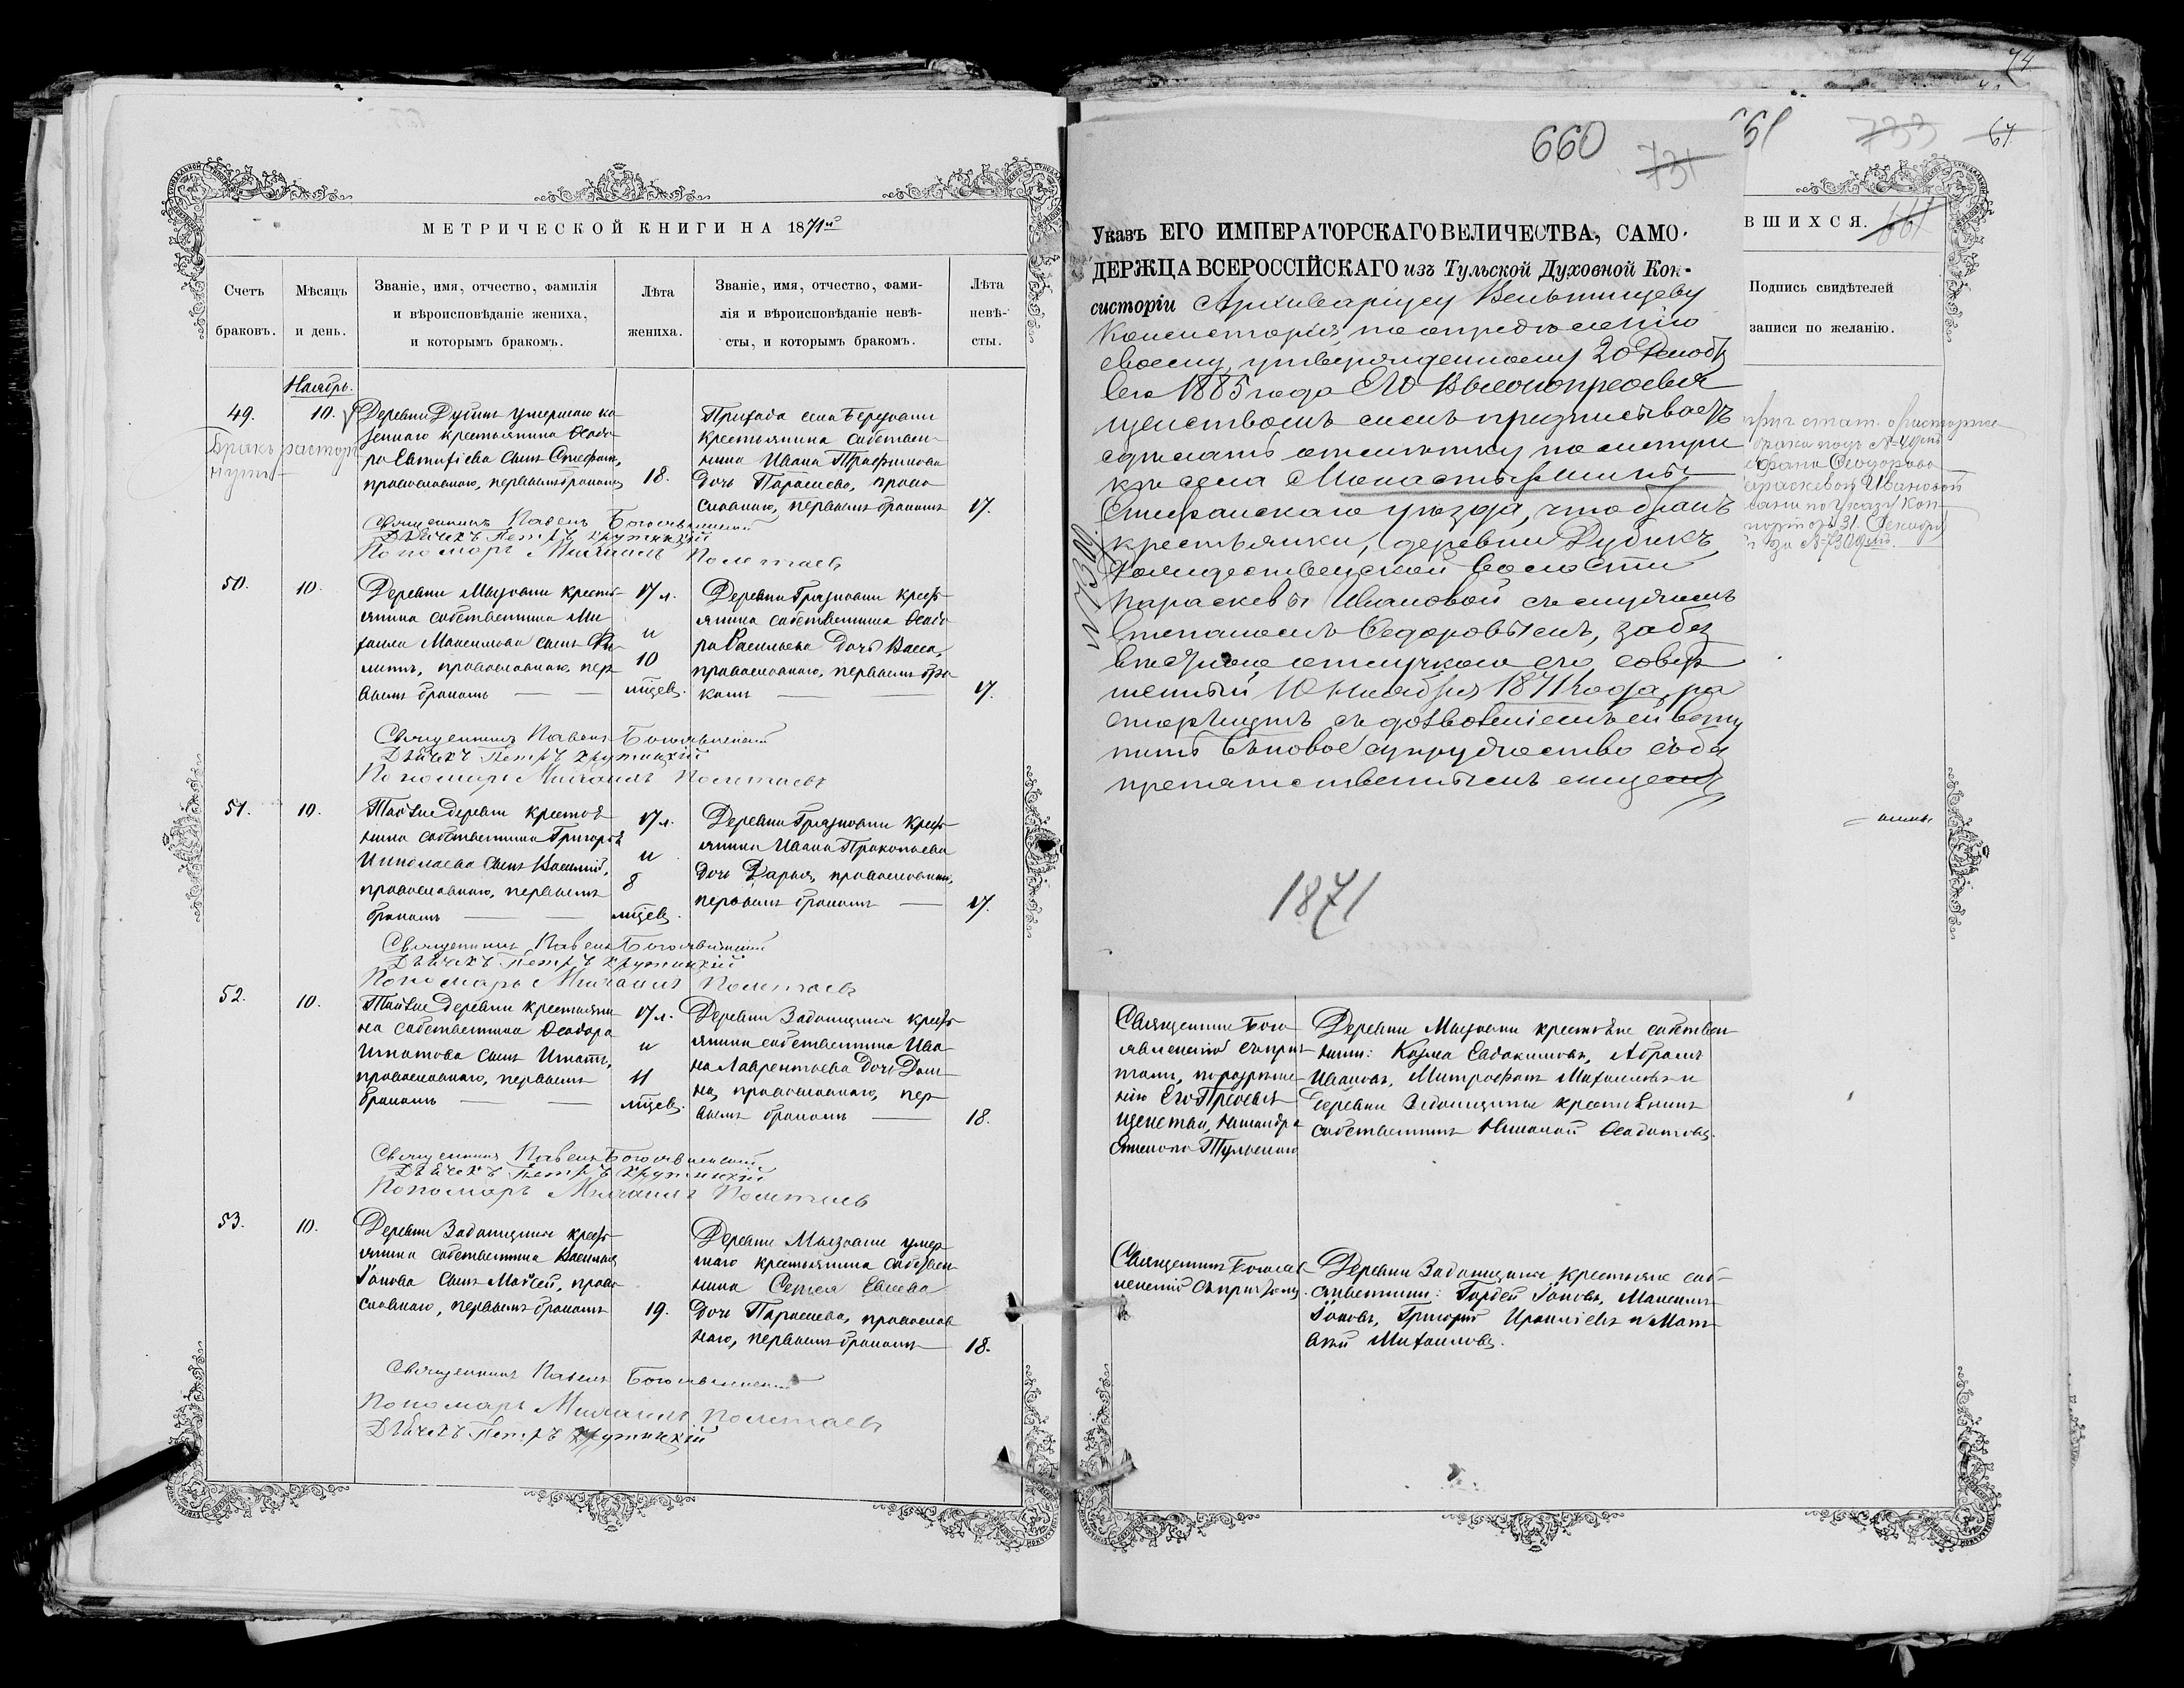 МЕТРИЧЕСКОЙ КНИГИ НА 1871й
Счетъ браковъ.
Мѣсяцъ и день.
Званіе, имя, отчество, фамилія
и вѣроисповѣданіе жениха,
и которымъ бракомъ.
Лѣта жениха.
Званіе, имя, отчество, фами-
лія и вѣроисповѣданіе невѣ-
сты, и которымъ бракомъ.
Лѣта невѣ-
сты.
Ноябрь.
49.
10.
Бракъ расторг
нутъ
Деревни Дубикъ умершаго ка-
зеннаго крестьянина Ѳеодо-
ра Евтихіева сынъ Стефанъ,
православнаго, первымъ бракомъ
18.
Прихода села
крестьянина собствен-
ника Ивана Трофимова
дочь Параскева, право-
славнаго, первымъ бракомъ
17.
Священникъ Павелъ Богоявленскій
Дьячекъ Петръ Крутицкій
Пономарь Михаилъ Полетаевъ
50.
10.
Деревни крестья-
янина собственника Ми-
хаила Максимова сынъ Фи-
липпъ, православнаго, пер-
вымъ бракомъ
17 л.
и
10
мѣсяц.
Деревни Грязновки крест-
янина собственника Ѳеодо-
ра Васильева дочь Васса,
православнаго, первымъ бра-
комъ
17.
Священникъ Павелъ Богоявленскій
Дьячекъ Петръ Крутицкій
Пономарь Михаилъ Полетаевъ
51.
10.
Той же деревни крестья-
нина собственника Григорія
Николаева сынъ Василій,
православнаго, первымъ
бракомъ
17 л.
и
8
мѣсяц.
Деревни Грязновки крест-
янина Ивана Прокопьева
дочь Дарья, православнаго,
первымъ бракомъ
17.
Священникъ Павелъ Богоявленскій
Дьячекъ Петръ Крутицкій
Пономарь Михаилъ Полетаевъ
52.
10.
Той же деревни крестьяни-
на собственника Ѳеодора
Игнатова сынъ Игнатъ,
православнаго, первымъ
бракомъ
17 л.
и
11
мѣсяц.
Деревни Задонщины крест-
янина собственника Ива-
на Лаврентьева дочь Дом-
на, православнаго, пер-
вымъ бракомъ
18.
Священникъ Павелъ Богоявленскій
Дьячекъ Петръ Крутицкій
Пономарь Михаилъ Полетаевъ
53.
10.
Деревни Задонщины крест-
янина собственника Василья
Іонова сынъ Моѵсей, право-
славнаго, первымъ бракомъ
19.
Деревни умер-
шаго крестьянина собствен-
ника Сергея Евсеева
дочь Параскева, православ-
наго, первымъ бракомъ
18.
Священникъ Павелъ Богоявленскій
Пономарь Михаилъ Полетаевъ
Дьячекъ Петръ Крутицкій
74
660
731
661
733
67
Указъ ЕГО ИМПЕРАТОРСКАГО ВЕЛИЧЕСТВА, САМО-
ДЕРЖЦА ВСЕРОССІЙСКАГО изъ Тульской Духовной Кон-
систоріи Архиваріусу Вельтищеву
Консисторія, по опредѣленію
своему, утвержденному 20 Декаб
сего 1885 года Его Высокопреосвя
щенствомъ симъ предписываетъ
сдѣлать отмѣтку по метри
кѣ села Монастырщины
Епифанскаго уѣзда, что бракъ
крестьянки, деревни Дубикъ,
Рождественской волости
Параскевы Ивановой съ мужемъ
Степаномъ Ѳедоровымъ, за без
вѣстною отлучкою его, совер
шенный 10 Ноября 1871 года, ра
сторгнутъ съ дозволеніемъ ей всту
пить въ новое супружество съ без
препятственнымъ лицемъ
№ 7330
1871
ВШИХСЯ.
661
Подпись свидѣтелей
записи по желанію.
стат. о расторже
брака подъ № 49мъ
Стефана Ѳеодорова
Параскевой Ивановой
по Указу Кон
систоріи отъ 31. Декабря
за № 7330мъ.
Священникъ Бого-
явленскій съ прич-
томъ, по разрѣше-
нію Его Преосвя-
щенства, Никандра
Епископа Тульскаго
Деревни крестьяне собствен-
ники: Козма Евдокимовъ, Абрамъ
Ивановъ, Митрофанъ Михаиловъ и
деревни Задонщины крестьянинъ
собственникъ Николай Ѳеодотовъ.
Священникъ Богояв-
ленскій съ причтомъ
Деревни Задонщины крестьяне соб-
ственники: Гордей Іоновъ, Максимъ
Іоновъ, Григорій и Мат-
вѣй Михаиловъ.